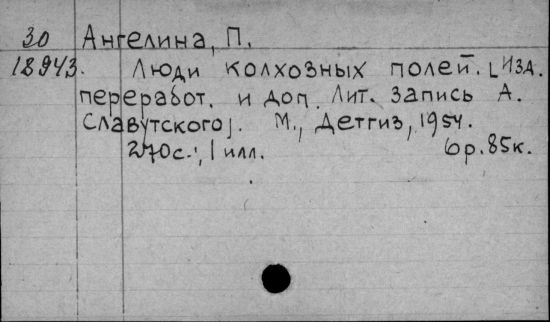 30 Ангелина, П.
18943. Люди колхозных полей. [Изд.
переработ. и доп. Лит. запись А.
Славутского]. М., Детгиз, 1954.
270с., 1 илл. 6р.85к.